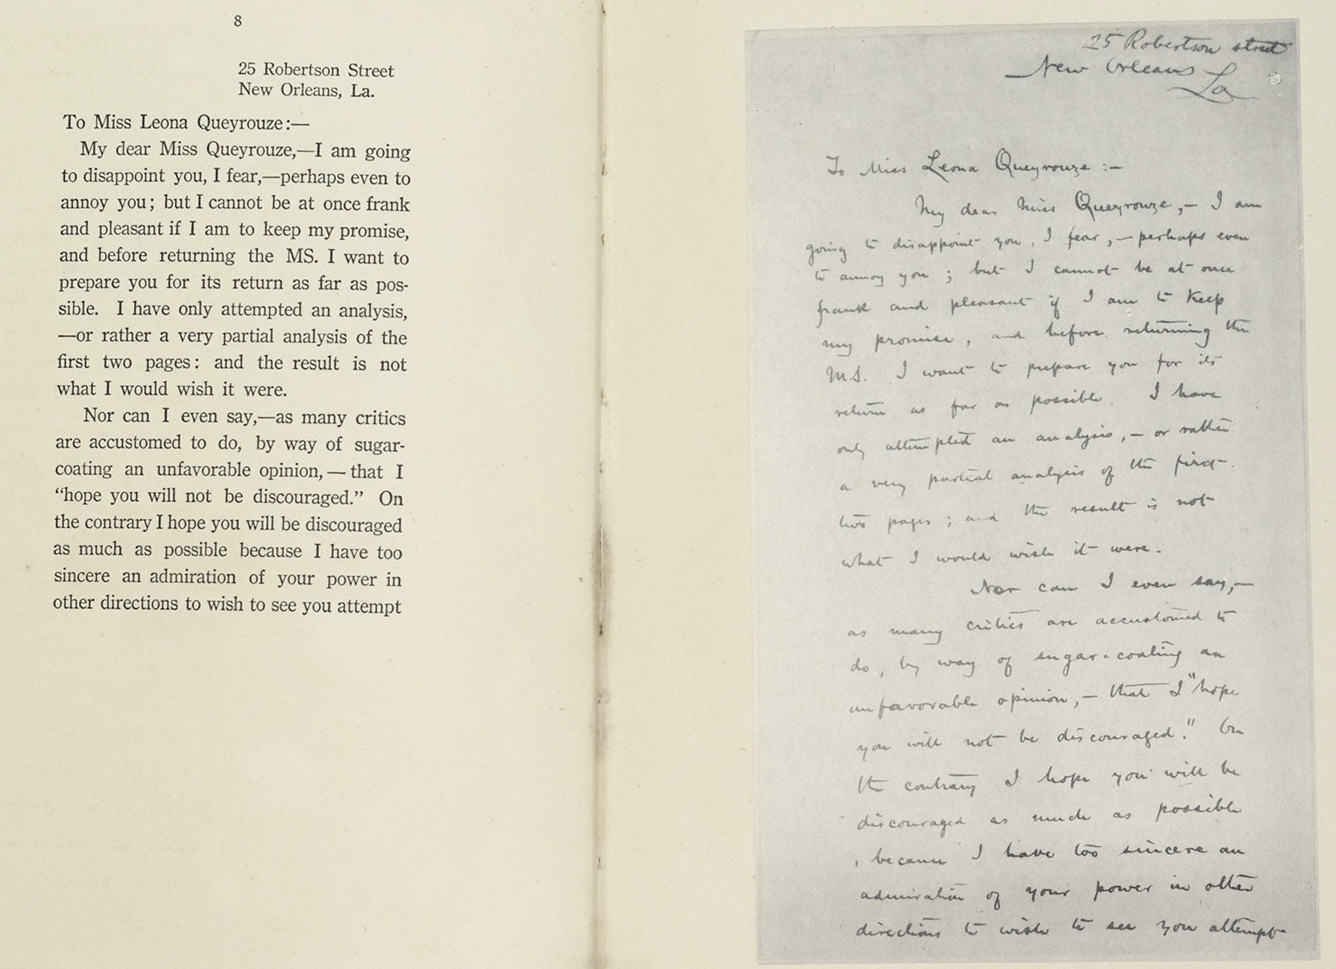 8
25 Robertson Street
New Orleans, La.
To Miss Leona Queyrouze:—
My dear Miss Queyrouze,—I am going
to disappoint you, I fear,—perhaps even to
annoy you; but I cannot be at once frank
and pleasant if I am to keep my promise,
and before returning the MS. I want to
prepare you for its return as far as pos-
sible. I have only attempted an analysis,
—or rather a very partial analysis of the
first two pages: and the result is not
what I would wish it were.
Nor can I even say,—as many critics
are accustomed to do, by way of sugar-
coating an unfavorable opinion,—that I
“hope you will not be discouraged.” On
the contrary I hope you will be discouraged
as much as possible because I have too
sincere an admiration of your power in
other directions to wish to see you attempt
25 Robertson street
New Orleans
La
To Miss Leona Queyrouze:—
My dear Miss Queyrouze,— I am
going to disappoint you, I fear,— perhaps even
to annoy you; but I cannot be at once
frank and pleasant if I am to keep
my promise, and before returning the
MS. I want to prepare you for its
return as far as possible. I have
only attempted an analysis,— or rather
a very partial analysis of the first
two pages; and the result is not
what I would wish it were.
Nor can I even say,—
as many critics are accustomed to
do, by way of sugar-coating an
unfavorable opinion,— that I "hope
you will not be discouraged." On
the contrary I hope you will be
discouraged as much as possible
, because I have too sincere an
admiration of your power in other
directions to wish to see you attempt